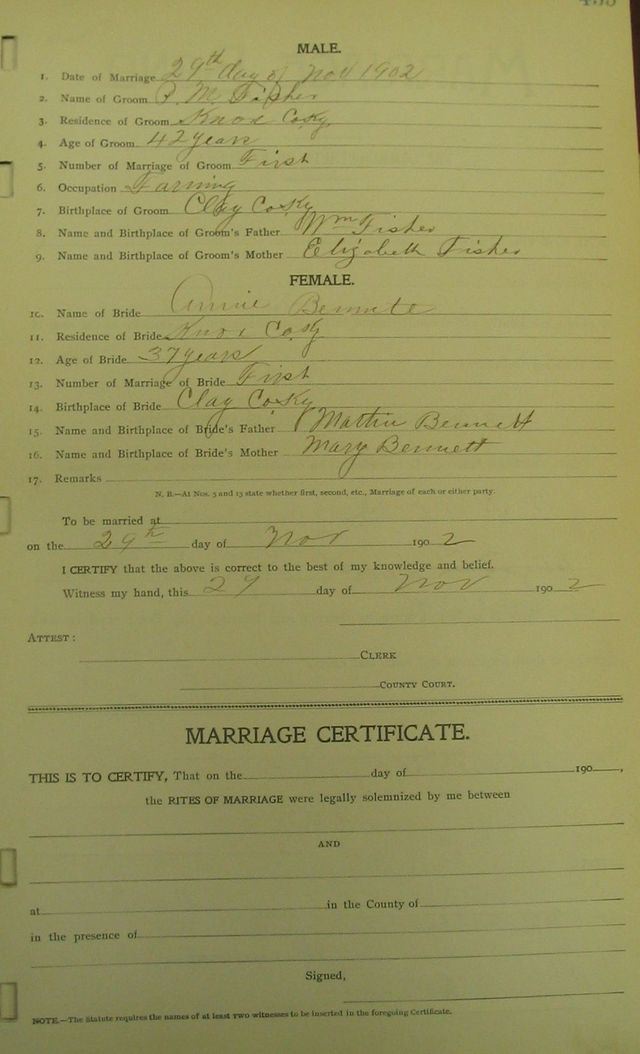 MALE.
1. Date of Marriage 29th day of Nov 1902
2. Name of Groom P. M. Fisher
3. Residence of Groom Knox Co Ky
4. Age of Groom 42 years
5. Number of Marriage of Groom First
6. Occupation Farming
7. Birthplace of Groom Clay Co Ky
8. Name and Birthplace of Groom's Father Wm Fisher
9. Name and Birthplace of Groom's Mother Elizabeth Fisher
FEMALE.
10. Name of Bride Annie Bennett
11. Residence of Bride Knox Co Ky
12. Age of Bride 37 years
13. Number of Marriage of Bride First
14. Birthplace of Bride Clay Co Ky
15. Name and Birthplace of Bride's Father Martin Bennett
16. Name and Birthplace of Bride's Mother Mary Bennett
17. Remarks
N. B.—At Nos. 5 and 13 state whether first, second, etc., Marriage of each or either party.
To be married at
on the 29th day of Nov 1902
I CERTIFY that the above is correct to the best of my knowledge and belief.
Witness my hand, this 29 day of Nov 1902
ATTEST:
CLERK
COUNTY COURT.
MARRIAGE CERTIFICATE.
THIS IS TO CERTIFY, That on the day of 190 ,
the RITES OF MARRIAGE were legally solemnized by me between
AND
at in the County of
in the presence of
Signed,
NOTE.—The Statute requires the names of at least two witnesses to be inserted in the foregoing Certificate.